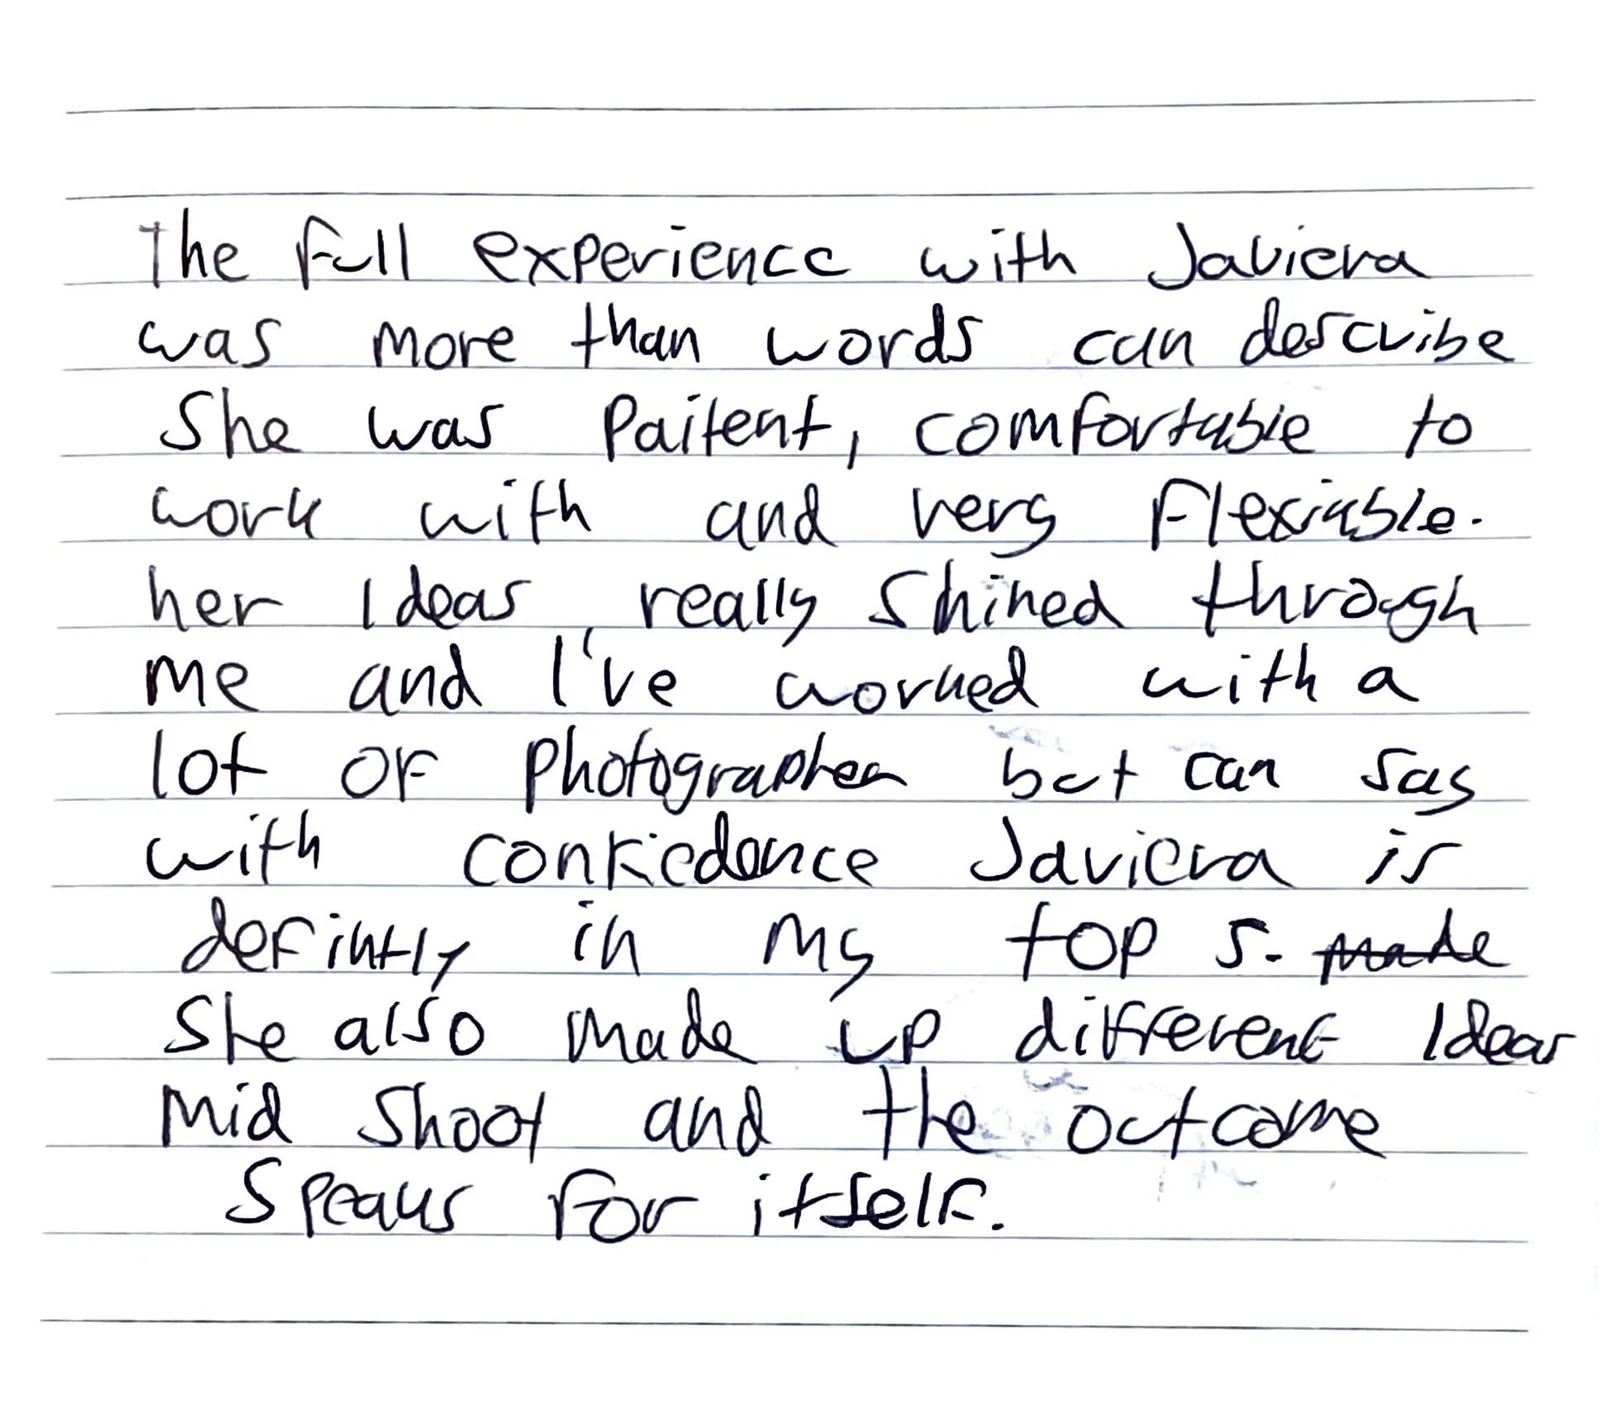 The full experience with Javiera
was more than words can describe
She was Paitent, comfortable to
work with and very Flexiable.
her Ideas really shined through
me and I've worked with a
lot of photographer but can say
with confiedance Javiera is
defintly in my top 5. made
She also made up different Ideas
Mid Shoot and the outcome
Speaks for itself.